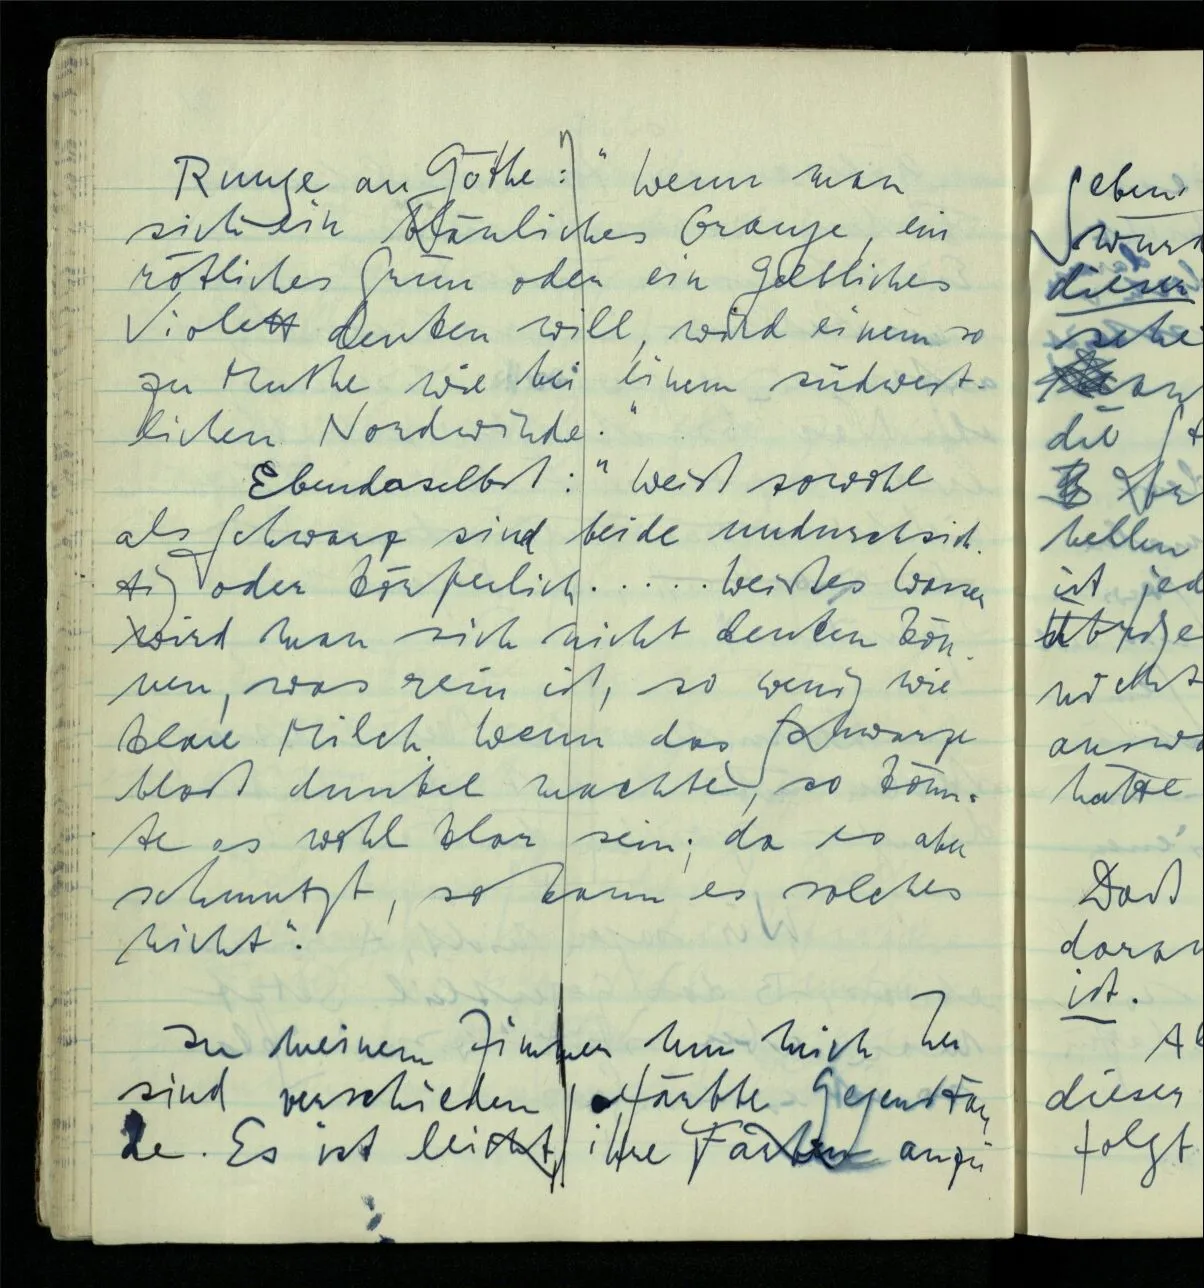 Runge an Göthe: " Wenn man
sich ein bläuliches Orange, ein
rötliches Grün oder ein gelbliches
Violett denken will, wird einem so
zu Muthe wie bei einem südwest-
lichen Nordwinde."
Ebendaselbst: " Weiß sowohl
als Schwarz sind beide undurchsich-
tig oder körperlich. . . . . . Weißes Wasser
wird man sich nicht denken kön-
nen, was rein ist, so wenig wie
klare Milch Wenn das Schwarze
bloß dunkel machte, so könn-
te es wohl klar sein; da es aber
schmutzt, so kann es solches
nicht".
In meinem Zimmer um mich her
sind verschieden färbte Gegenstän
de. Es ist leicht, ihre Farben anzu
geben.
wurd
dieser
sehe
an
die
hellen
ist jed
übrige
nichts
ausw
hatte
Daß
daran
ist.
dieser
folgt